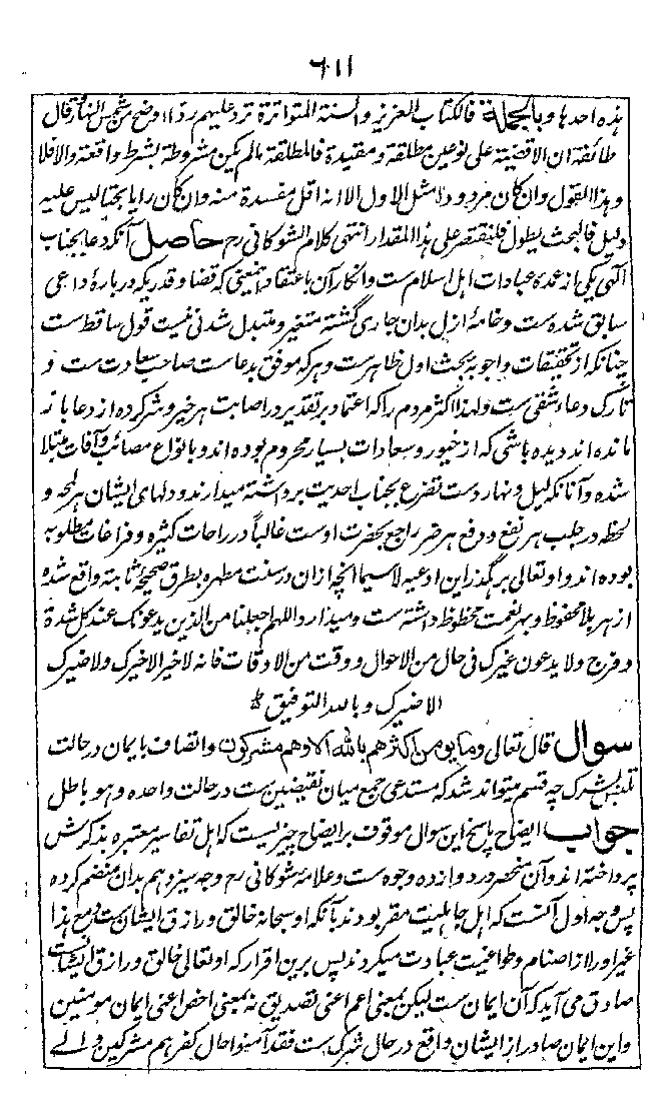 ٦١١
هذه احدها وبالجملة فالکتاب العزیز والسنة المتواترة ترد علیهم ردا اوضح من شمس النهار وقال
طائفة ان الاقضیة علی نوعین مطلقة و مقیدة فالمطلقة مالم یکن مشروطة بشرط واقعة والا فلا
وهذا المقول وان کان مردودا مثل الاول الا انه اقل مفسدة منه وان کان رایا بحتا لیس علیه
دلیل فالبحث یطول فلنقتصر علی هذا المقدار انتهی کلام الشوکانی رح حاصل آنکه دعا بجناب
الٰهی یکی از عمدۀ عبادات اهل اسلام ست و انکار آن باعتقاد اینمعنی که قضا و قدریکه دربارۀ داعی
سابق شده ست و خامۀ ازل بدان جاری گشته متغیر و متبدل شدنی نیست قول ساقط ست
چنانکه از تحقیقات واجوبۀ بحث اول ظاهرست و هرکه موفق بدعاست صاحب سعادت ست و
تارک دعا شقی ست و لهذا اکثر مردم را که اعتماد بر تقدیر در اصابت هر خیر و شر کرده از دعا باز
مانده اند دیده باشی که از خیور و سعادات بسیار محروم بوده اند و بانواع مصائب و آفات مبتلا
شده و آنانکه لیل و نهار دست تضرع بجناب احدیت برداشته میدارند و دلهای ایشان هر لمحه و
لحظه در جلب هر نفع و دفع هر ضرر راجع بحضرت اوست غالباً در راحات کثیره و فراغات مطلوبه
بوده اند و او تعالی برگذر این ادعیه لاسیما انچه ازان در سنت مطهره بطرق صحیحه ثابته واقع شده
از هر بلا محفوظ و بهر نعمت محظوظ داشته ست و میدارد اللهم اجعلنا من الذین یدعونک عند کل شدة
و فرج ولا یدعون غیرک فی حال من الاحوال و وقت من الاوقات فانه لا خیر الا خیرک ولا ضیرک
الا ضیرک و بالله التوفیق
سوال قال تعالی وما یؤمن اکثرهم بالله الا وهم مشرکون واتصاف بایمان در حالت
تلبس بشرک چه قسم میتواند شد که مستدعی جمع میان نقیضین ست در حالت واحده و هو باطل
جواب ایضاح پاسخ این سوال موقوف بر ایضاح چیزیست که اهل تفاسیر معتبره بذکرش
پرداخته اند و آن منحصر در دوازده وجوه ست و علامه شوکانی رح وجه سیزدهم بدان منضم کرده
پس وجه اول آنست که اهل جاهلیت مقر بودند بآنکه او سبحانه خالق و رازق ایشان ست و مع هذا
غیر او را از اصنام و طواغیت عبادت میکردند پس برین اقرار که او تعالی خالق و رازق ایشانست
صادق می آید که آن ایمان ست لیکن بمعنی اعم اعنی تصدیق نه بمعنی اخص اعنی ایمان مومنین
و این ایمان صادر از ایشان واقع در حال شرک ست فقد آمنوا حال کفرهم مشرکین و الے